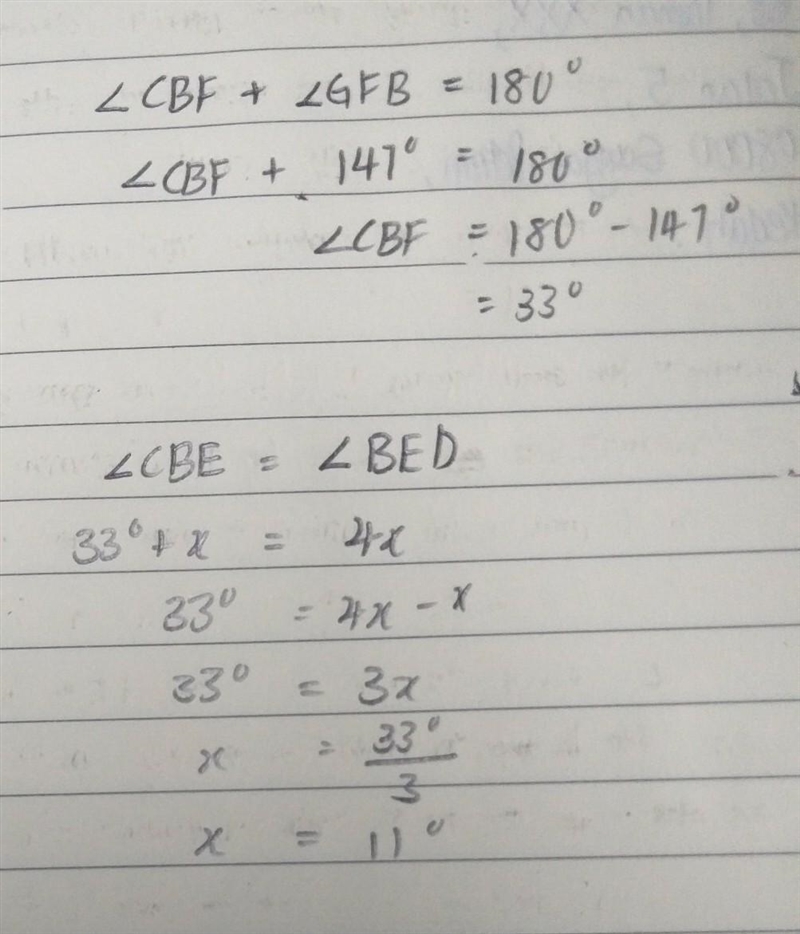 ∠CBF + ∠GFB = 180°
∠CBF + 147° = 180°
∠CBF = 180° - 147°
= 33°
∠CBE = ∠BED
33° + x = 4x
33° = 4x - x
33° = 3x
x = 33°/3
x = 11°